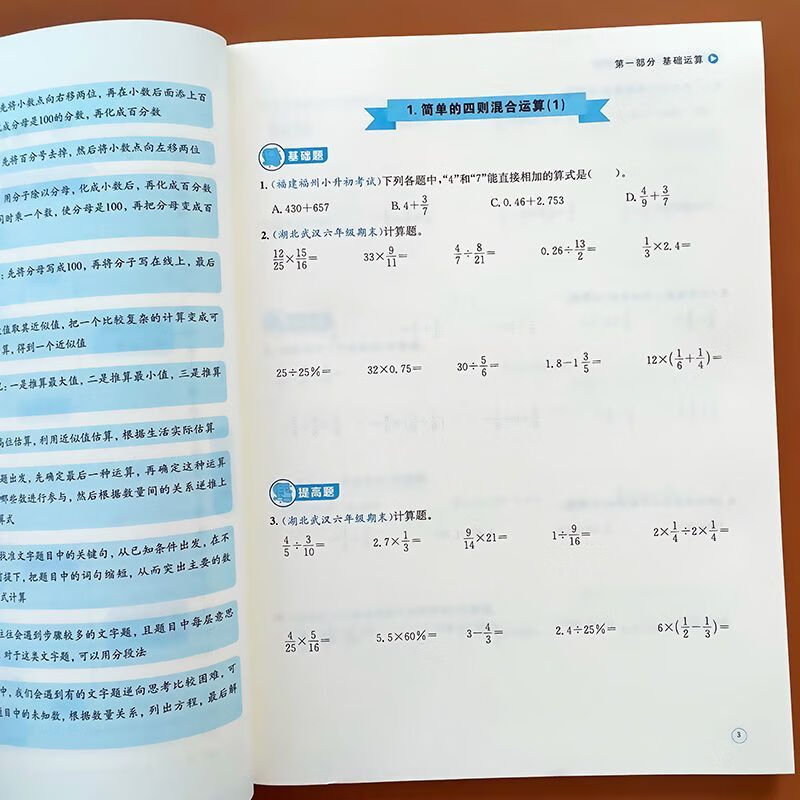 先将小数点向右移两位，再在小数后面添上百
成分母是100的分数，再化成百分数
先将百分号去掉，然后将小数点向左移两位
用分子除以分母，化成小数后，再化成百分数
同时乘一个数，使分母是100，再把分母变成百
：先将分母写成100，再将分子写在线上，最后
值取其近似值，把一个比较复杂的计算变成可
算，得到一个近似值
：一是推算最大值，二是推算最小值，三是推算
高位估算，利用近似值估算，根据生活实际估算
题出发，先确定最后一种运算，再确定这种运算
哪些数进行参与，然后根据数量间的关系逆推上
算式
找准文字题目中的关键句，从已知条件出发，在不
前提下，把题目中的词句缩短，从而突出主要的数
式计算
往往会遇到步骤较多的文字题，且题目中每层意思
对于这类文字题，可以用分段法
中，我们会遇到有的文字题逆向思考比较困难，可
题目中的未知数，根据数量关系，列出方程，最后解
第一部分 基础运算
1. 简单的四则混合运算(1)
基础题
1. (福建福州小升初考试)下列各题中，“4”和“7”能直接相加的算式是(　　)。
A. 430+657 B. 4+3/7 C. 0.46+2.753 D. 4/9+3/7
2. (湖北武汉六年级期末)计算题。
12/25×15/16= 33×9/11= 4/7÷8/21= 0.26÷13/2= 1/3×2.4=
25÷25%= 32×0.75= 30÷5/6= 1.8-1 3/5= 12×(1/6+1/4)=
提高题
3. (湖北武汉六年级期末)计算题。
4/5÷3/10= 2.7×1/3= 9/14×21= 1÷9/16= 2×1/4÷2×1/4=
4/25×5/16= 5.5×60%= 3-4/3= 2.4÷25%= 6×(1/2-1/3)=
3